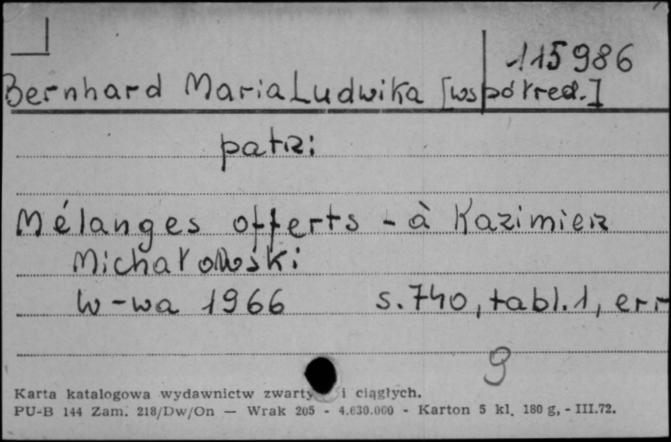 115986
Bernhard Maria Ludwika [współred.]
patrz:
Mélanges offerts - à Kazimierz
Michałowski
W-wa 1966 s. 740, tabl. 1, err
9
Karta katalogowa wydawnictw zwarty i ciągłych.
PU-B 144 Zam. 218/Dw/On — Wrak 205 - 4.630.000 - Karton 5 kl. 180 g, - III.72.